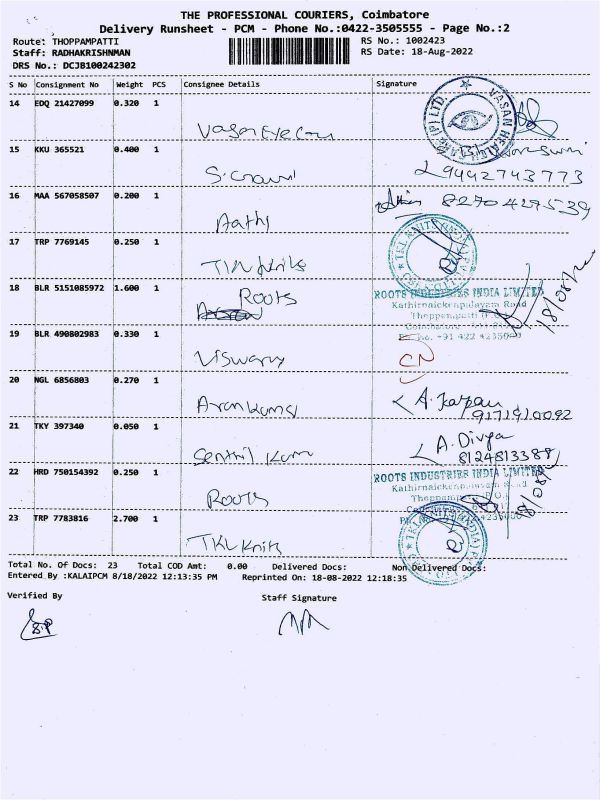 THE PROFESSIONAL COURIERS, Coimbatore
Delivery Runsheet - PCM - Phone No.:0422-3505555 - Page No.:2
Route: THOPPAMPATTI
RS No.: 1002423
Staff: RADHAKRISHNMAN
RS Date: 18-Aug-2022
DRS No.: DCJB100242302
S No Consignment No Weight PCS Consignee Details Signature
14 EDQ 21427099 0.320 1
Vasan Eye Care
VASAN HEALTH CARE (P) LTD.
15 KKU 365521 0.400 1
9442743773
16 MAA 567058507 0.200 1
8270427539
Aathi
17 TRP 7769145 0.250 1
TKL Knits
TKL KNITS (INDIA)
18 BLR 5151085972 1.600 1
Roots
ROOTS INDUSTRIES INDIA LIMITED
Kathirnaickenpalayam Road
Thoppampatti (P.O.)
Coimbatore
Ph no. +91 422 4235000
19 BLR 490802983 0.330 1
CN
Viswa
20 NGL 6856803 0.270 1
A.
Arun Kumar
21 TKY 397340 0.050 1
A. Divya
8124813388
Senthil Kumar
22 HRD 750154392 0.250 1
Roots
ROOTS INDUSTRIES INDIA LIMITED
Kathirnaickenpalayam Road
23 TRP 7783816 2.700 1
TKL Knits
Total No. Of Docs: 23 Total COD Amt: 0.00 Delivered Docs: Non Delivered Docs:
Entered By :KALAIPCM 8/18/2022 12:13:35 PM Reprinted On: 18-08-2022 12:18:35
Verified By
Staff Signature